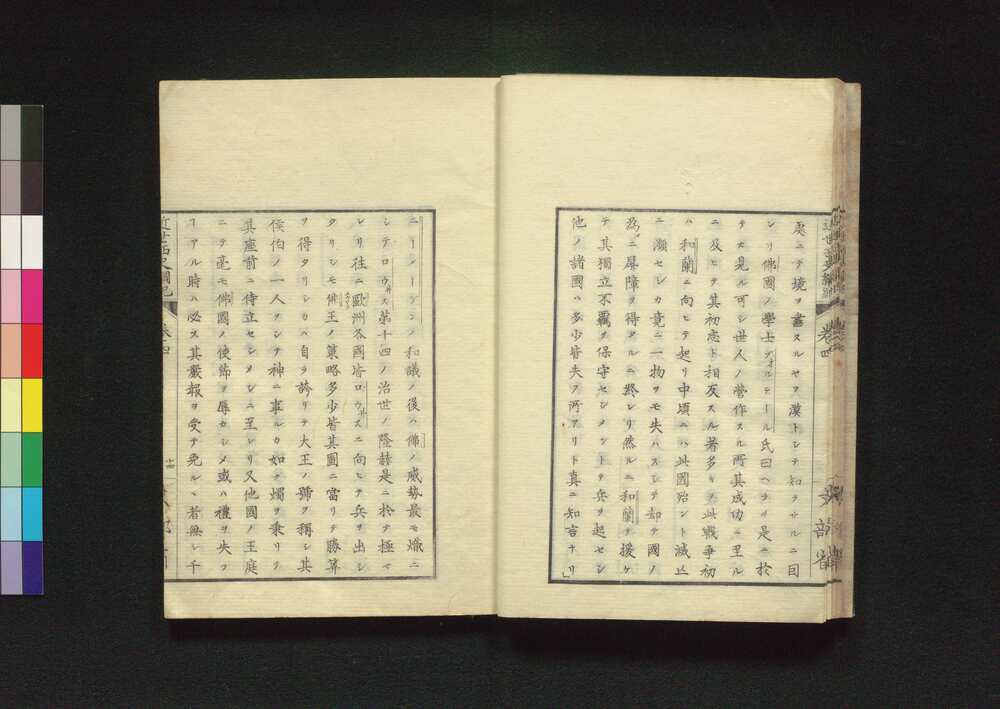 処ニテ境ヲ畫スルヤヲ漠トシテ知ラサルニ因
レリ佛國ノ學士ヲオルテール氏曰ヘラク是ニ於
テカ見ル可シ世人ノ營作スル所其成功ニ至ル
ニ及ヒテ其初志ト相反スル者多キヲ此戰爭初
ハ和蘭ニ向ヒテ起リ中頃ニハ此國殆ント滅亡
ニ瀕セシカ竟ニ一物ヲモ失ハスシテ却テ國ノ
為ニ屏障ヲ得タルニ終レリ然ルニ和蘭ヲ援ケ
テ其獨立不羈ヲ保守セシメントテ兵ヲ起セシ
他ノ諸國ハ多少皆失フ所アリト真ニ知言ナリ」
文部省
ニーメーゲンノ和議ノ後ハ佛ノ威勢最モ熾ニ
シテロウ井ス第十四ノ治世ノ隆赫是ニ於テ極マ
レリ往ニ歐洲各國皆ロウ井スニ向ヒテ兵ヲ出シ
タリシモ佛王ノ策略多少皆其圖ニ當リテ勝算
ヲ得タリシカハ自ラ誇リテ大王ノ號ヲ稱シ其
侯伯ノ一人ヲシテ神ニ事ルカ如ク燭ヲ秉リテ
其座前ニ侍立セシメシニ至レリ又他國ノ王庭
ニテ毫モ佛國ノ使節ヲ辱カシメ或ハ禮ヲ失フ
ヿアル時ハ必ス其嚴報ヲ受テ免ルヽ者無シ千
近世西史綱紀
卷四
十四